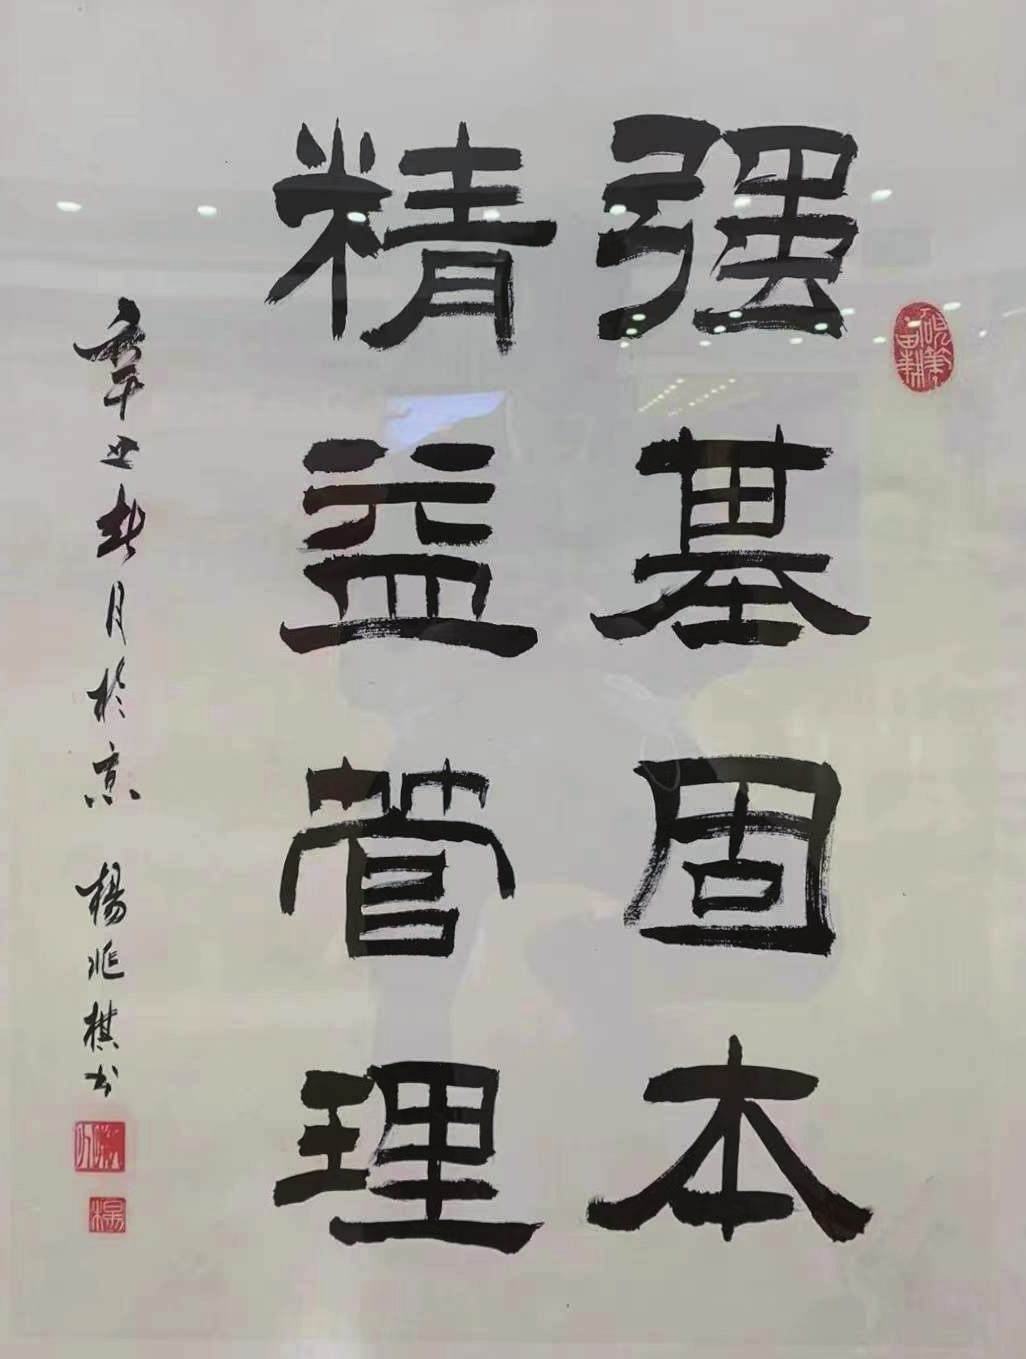 强基固本
精益管理
辛丑秋月於京 楊兆棋书